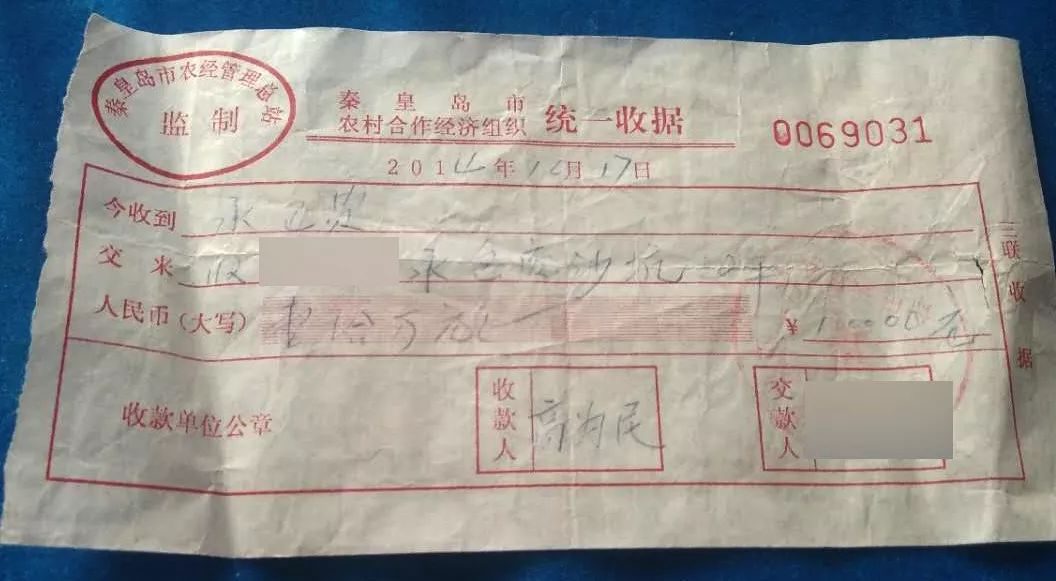 秦皇岛市农经管理总站
监制
秦皇岛市
农村合作经济组织 统一收据
0069031
2014年12月17日
今收到 永
交来 收 沙坑
人民币(大写) 壹拾万元
¥ 100000元
三联收据
收款单位公章
收款人 高为民
交款人